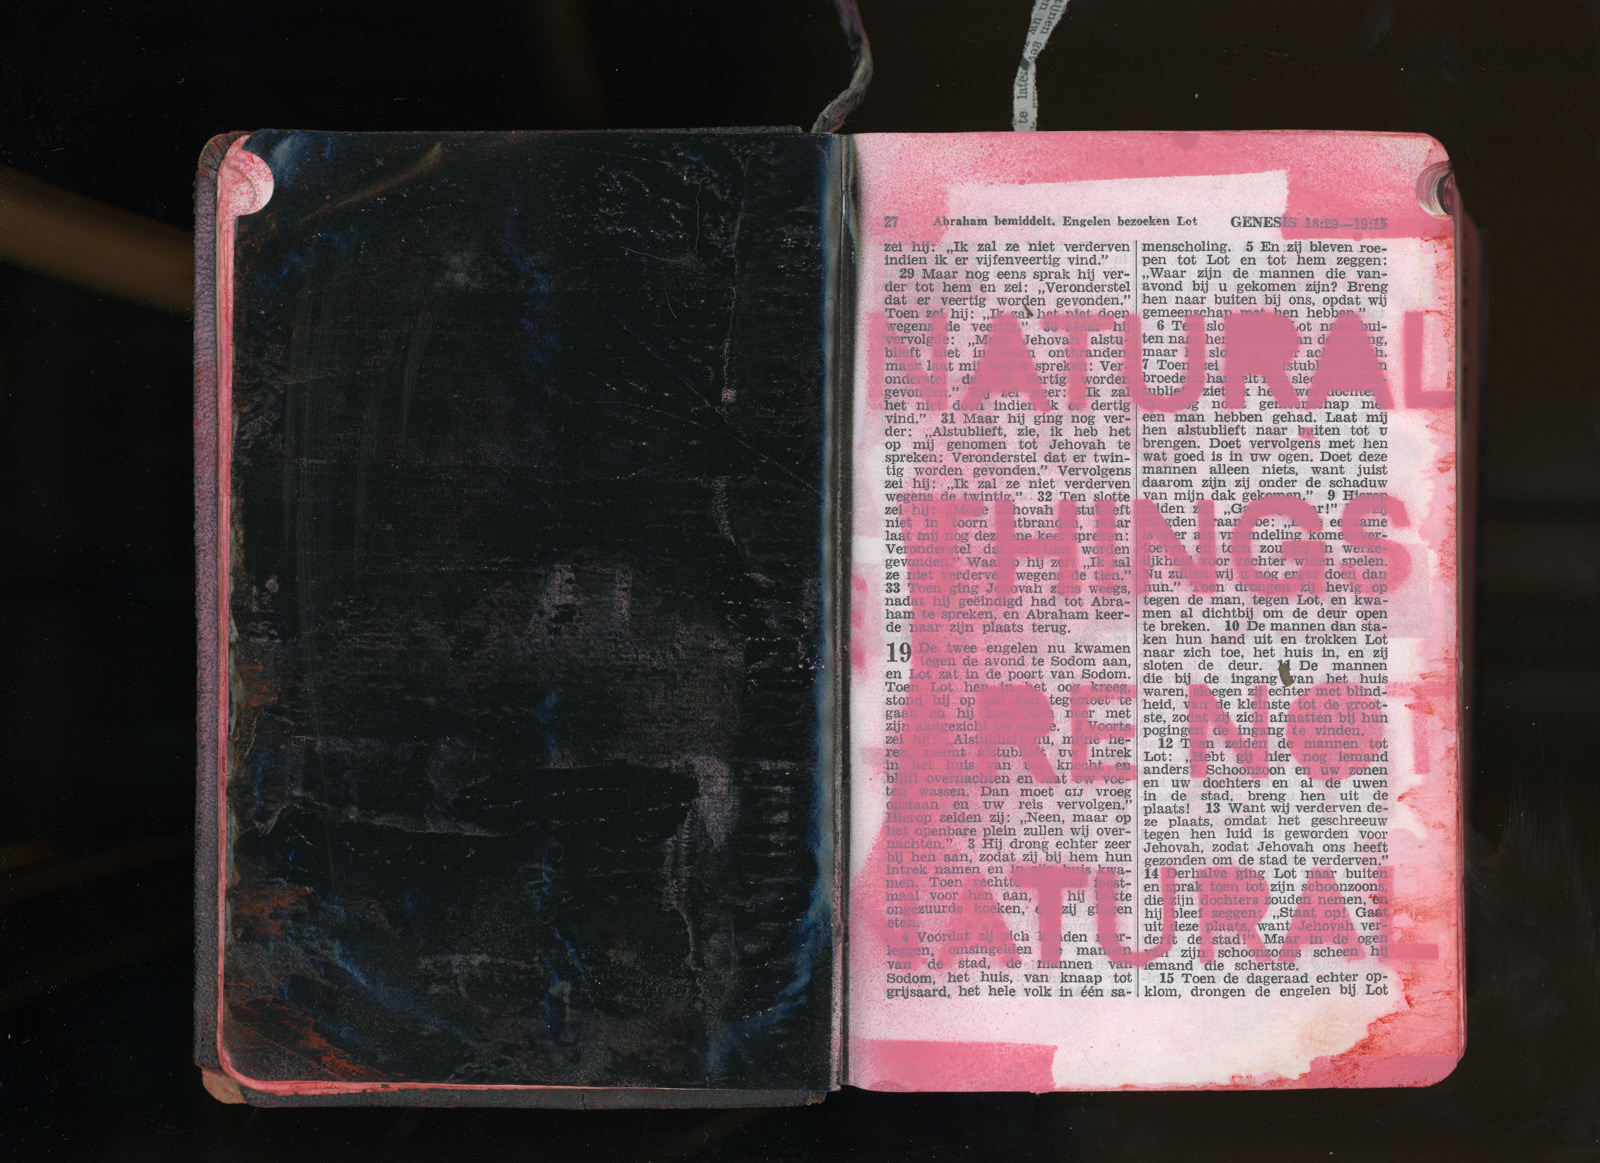 27 Abraham bemiddelt. Engelen bezoeken Lot GENESIS 18:29—19:15
zei hij: „Ik zal ze niet verderven
indien ik er vijfenveertig vind.”
29 Maar nog eens sprak hij ver-
der tot hem en zei: „Veronderstel
dat er veertig worden gevonden.”
Toen zei hij: „Ik zal het niet doen
wegens de veertig.” 30 Maar hij
vervolgde: „Moge Jehovah alstu-
blieft niet in toorn ontbranden,
maar laat mij verder spreken: Ver-
onderstel dat er dertig worden
gevonden.” Hij zei weer: „Ik zal
het niet doen indien ik er dertig
vind.” 31 Maar hij ging nog ver-
der: „Alstublieft, zie, ik heb het
op mij genomen tot Jehovah te
spreken: Veronderstel dat er twin-
tig worden gevonden.” Vervolgens
zei hij: „Ik zal ze niet verderven
wegens de twintig.” 32 Ten slotte
zei hij: „Moge Jehovah alstublieft
niet in toorn ontbranden, maar
laat mij nog deze ene keer spreken:
Veronderstel dat er tien worden
gevonden.” Waarop hij zei: „Ik zal
ze niet verderven wegens de tien.”
33 Toen ging Jehovah zijns weegs,
nadat hij geëindigd had tot Abra-
ham te spreken, en Abraham keer-
de naar zijn plaats terug.
19 De twee engelen nu kwamen
tegen de avond te Sodom aan,
en Lot zat in de poort van Sodom.
Toen Lot hen in het oog kreeg,
stond hij op om hen tegemoet te
gaan en hij boog zich neer met
zijn aangezicht ter aarde. 2 Voorts
zei hij: „Alstublieft nu, mijne he-
ren, neemt alstublieft uw intrek
in het huis van uw knecht en
blijft overnachten en laat uw voe-
ten wassen. Dan moet GIJ vroeg
opstaan en UW reis vervolgen.”
Hierop zeiden zij: „Neen, maar op
het openbare plein zullen wij over-
nachten.” 3 Hij drong echter zeer
bij hen aan, zodat zij bij hem hun
intrek namen en in zijn huis kwa-
men. Toen rechtte feest-
maal voor hen aan, hij bakte
ongezuurde koeken, en zij gingen
eten.
4 Voordat zij zich konden neer-
leggen, omsingelden de mannen
van de stad, de mannen van
Sodom, het huis, van knaap tot
grijsaard, het hele volk in één sa-
menscholing. 5 En zij bleven roe-
pen tot Lot en tot hem zeggen:
„Waar zijn de mannen die van-
avond bij u gekomen zijn? Breng
hen naar buiten bij ons, opdat wij
gemeenschap met hen hebben.”
6 Ten slotte Lot naar bui-
ten naar hen
maar hij sloot
7 Toen zei
broeders, handelt slecht.
alstublieft, ziet, ik heb twee dochters
nog nooit gemeenschap met
een man hebben gehad. Laat mij
hen alstublieft naar buiten tot U
brengen. Doet vervolgens met hen
wat goed is in UW ogen. Doet deze
mannen alleen niets, want juist
daarom zijn zij onder de schaduw
van mijn dak gekomen.” 9 Hierop
zeiden zij: „Ga
voegden eraan toe: eenzame
is hier als vreemdeling komen ver-
toeven en toch zou hij in werke-
lijkheid voor rechter willen spelen.
Nu zullen wij u nog erger doen dan
hun.” Toen drongen zij hevig op
tegen de man, tegen Lot, en kwa-
men al dichtbij om de deur open
te breken. 10 De mannen dan sta-
ken hun hand uit en trokken Lot
naar zich toe, het huis in, en zij
sloten de deur. 11 De mannen
die bij de ingang van het huis
waren, sloegen zij echter met blind-
heid, van de kleinste tot de groot-
ste, zodat zij zich afmatten bij hun
pogingen de ingang te vinden.
12 Toen zeiden de mannen tot
Lot: „Hebt gij hier nog iemand
anders? Schoonzoon en uw zonen
en uw dochters en al de uwen
in de stad, breng hen uit de
plaats! 13 Want wij verderven de-
ze plaats, omdat het geschreeuw
tegen hen luid is geworden voor
Jehovah, zodat Jehovah ons heeft
gezonden om de stad te verderven.”
14 Derhalve ging Lot naar buiten
en sprak toen tot zijn schoonzoons,
die zijn dochters zouden nemen, en
hij bleef zeggen: „Staat op! Gaat
uit deze plaats, want Jehovah ver-
derft de stad!” Maar in de ogen
van zijn schoonzoons scheen hij
iemand die schertste.
15 Toen de dageraad echter op-
klom, drongen de engelen bij Lot
NATURAL
THINGS
ARE NOT
NATURAL